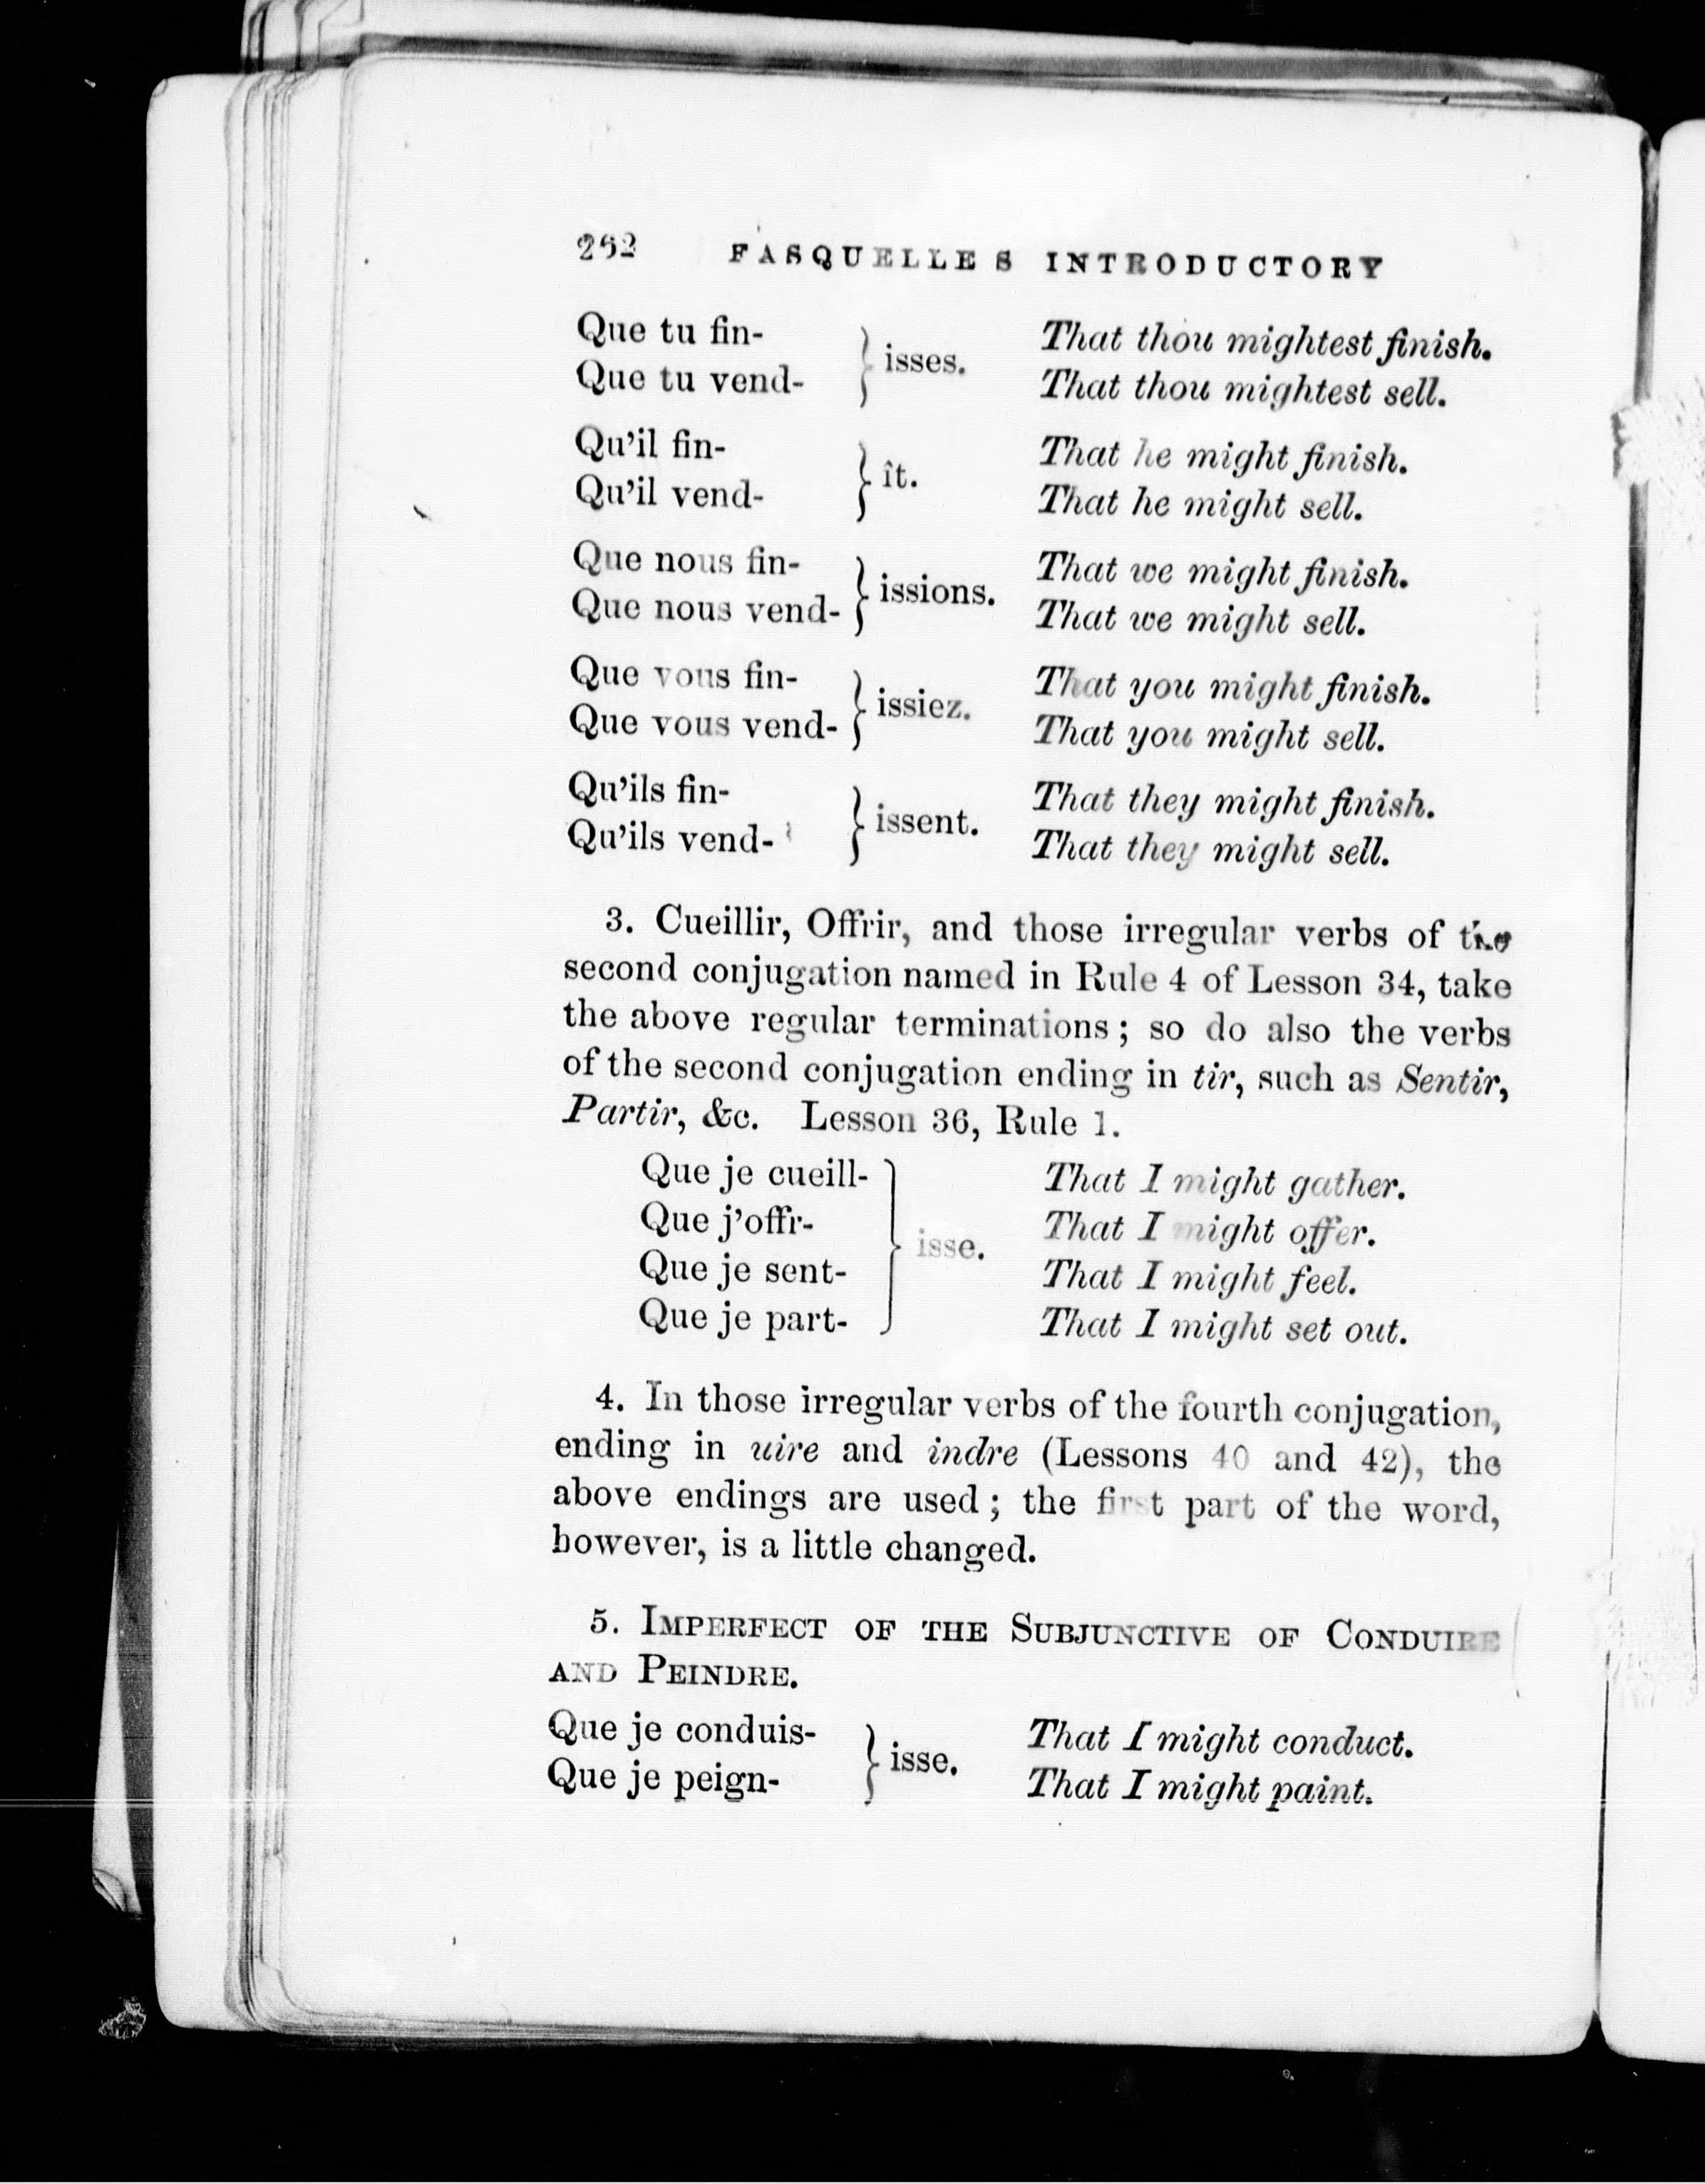 262 FASQUELLE S INTRODUCTORY
Que tu fin- } isses. That thou mightest finish.
Que tu vend- That thou mightest sell.
Qu'il fin- } ît. That he might finish.
Qu'il vend- That he might sell.
Que nous fin- } issions. That we might finish.
Que nous vend- That we might sell.
Que vous fin- } issiez. That you might finish.
Que vous vend- That you might sell.
Qu'ils fin- } issent. That they might finish.
Qu'ils vend- That they might sell.
3. Cueillir, Offrir, and those irregular verbs of the
second conjugation named in Rule 4 of Lesson 34, take
the above regular terminations; so do also the verbs
of the second conjugation ending in tir, such as Sentir,
Partir, &c. Lesson 36, Rule 1.
Que je cueill- } isse. That I might gather.
Que j'offr- That I might offer.
Que je sent- That I might feel.
Que je part- That I might set out.
4. In those irregular verbs of the fourth conjugation,
ending in uire and indre (Lessons 40 and 42), the
above endings are used; the first part of the word,
however, is a little changed.
5. IMPERFECT OF THE SUBJUNCTIVE OF CONDUIRE
AND PEINDRE.
Que je conduis- } isse. That I might conduct.
Que je peign- That I might paint.